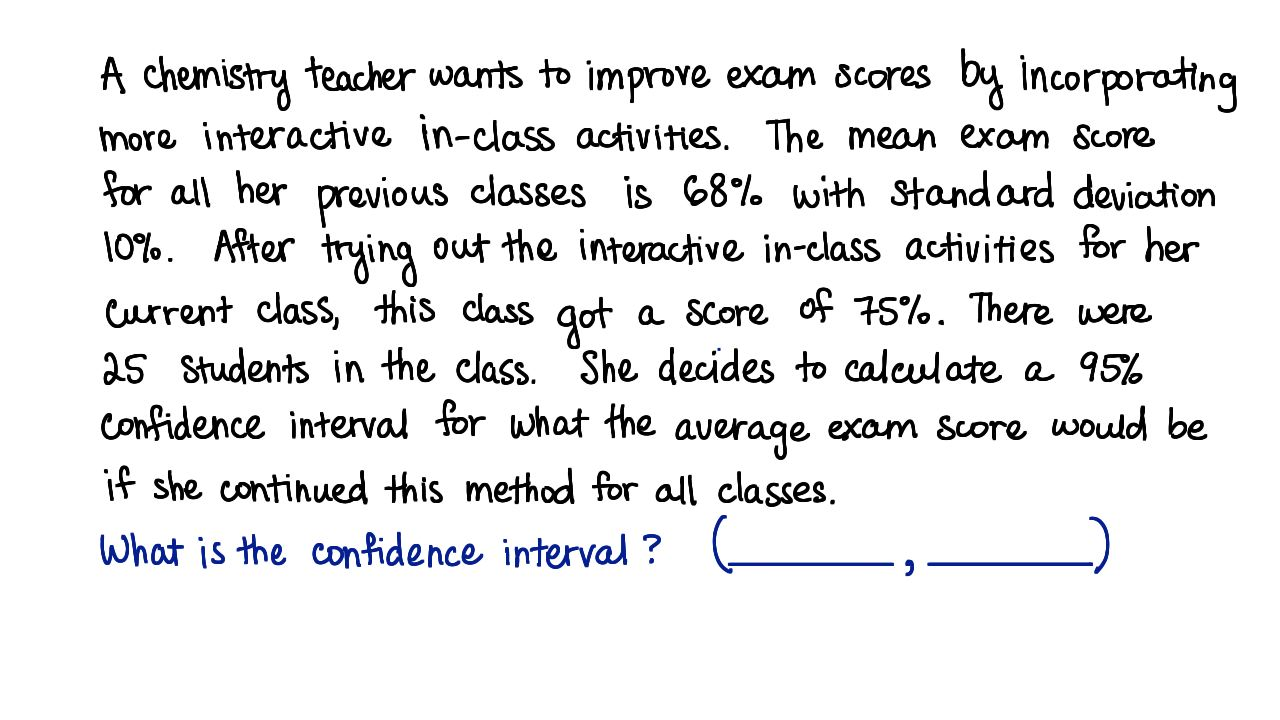 A chemistry teacher wants to improve exam scores by incorporating
more interactive in-class activities. The mean exam score
for all her previous classes is 68% with standard deviation
10%. After trying out the interactive in-class activities for her
current class, this class got a score of 75%. There were
25 students in the class. She decides to calculate a 95%
confidence interval for what the average exam score would be
if she continued this method for all classes.
What is the confidence interval? (________,________)